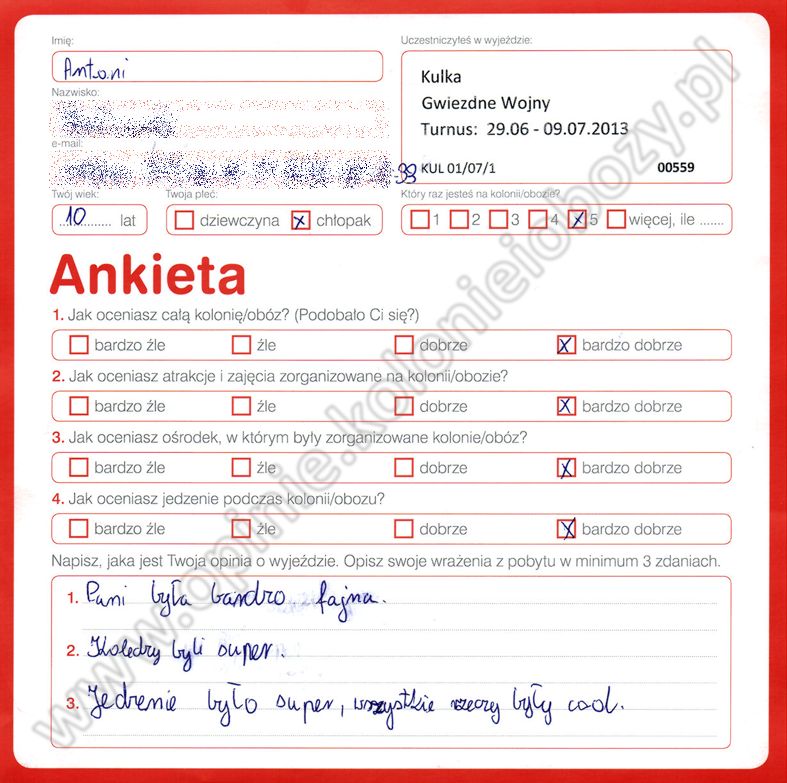 Imię:
Uczestniczyłeś w wyjeździe:
Antoni
Kulka
Gwiezdne Wojny
Turnus: 29.06 - 09.07.2013
KUL 01/07/1 00559
Nazwisko:
e-mail:
-99
Twój wiek: Twoja płeć: Który raz jesteś na kolonii/obozie?
10 lat dziewczyna x chłopak 1 2 3 4 x 5 więcej, ile .......
Ankieta
1. Jak oceniasz całą kolonię/obóz? (Podobało Ci się?)
bardzo źle źle dobrze x bardzo dobrze
2. Jak oceniasz atrakcje i zajęcia zorganizowane na kolonii/obozie?
bardzo źle źle dobrze x bardzo dobrze
3. Jak oceniasz ośrodek, w którym były zorganizowane kolonie/obóz?
bardzo źle źle dobrze x bardzo dobrze
4. Jak oceniasz jedzenie podczas kolonii/obozu?
bardzo źle źle dobrze x bardzo dobrze
Napisz, jaka jest Twoja opinia o wyjeździe. Opisz swoje wrażenia z pobytu w minimum 3 zdaniach.
1. Pani była bardzo fajna.
2. Koledzy byli super.
3. Jedzenie było super, wszystkie rzeczy były cool.
www.opinie.kolonieiobozy.pl